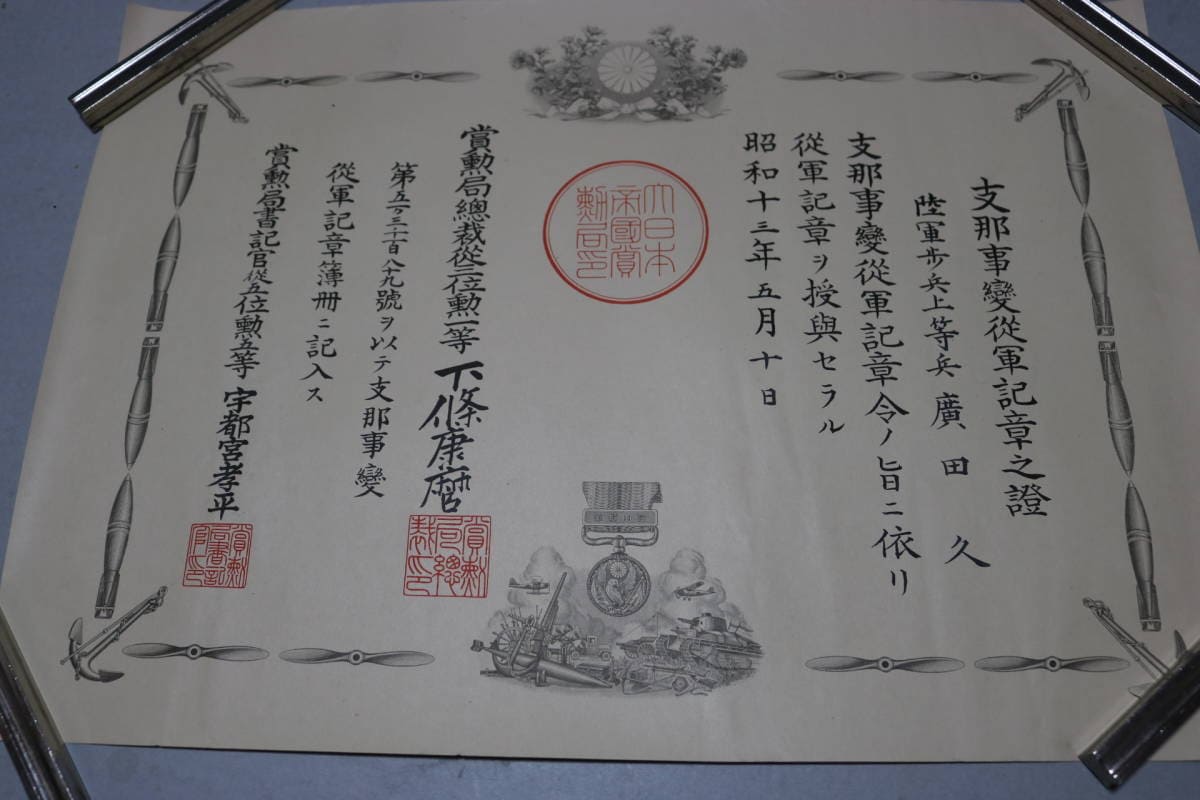 支那事變從軍記章之證
陸軍步兵上等兵廣田久
支那事變從軍記章令ノ旨ニ依リ
從軍記章ヲ授與セラル
昭和十三年五月十日
大日本
帝國賞
勳局印
賞勲局總裁從三位勲一等下條康麿
八十九號ヲ以テ支那事變
從軍記章簿册ニ記入ス
賞勲局書記官從五位勲五等宇都宮孝平
賞勳
局總
裁印
賞勳
局書記
官印